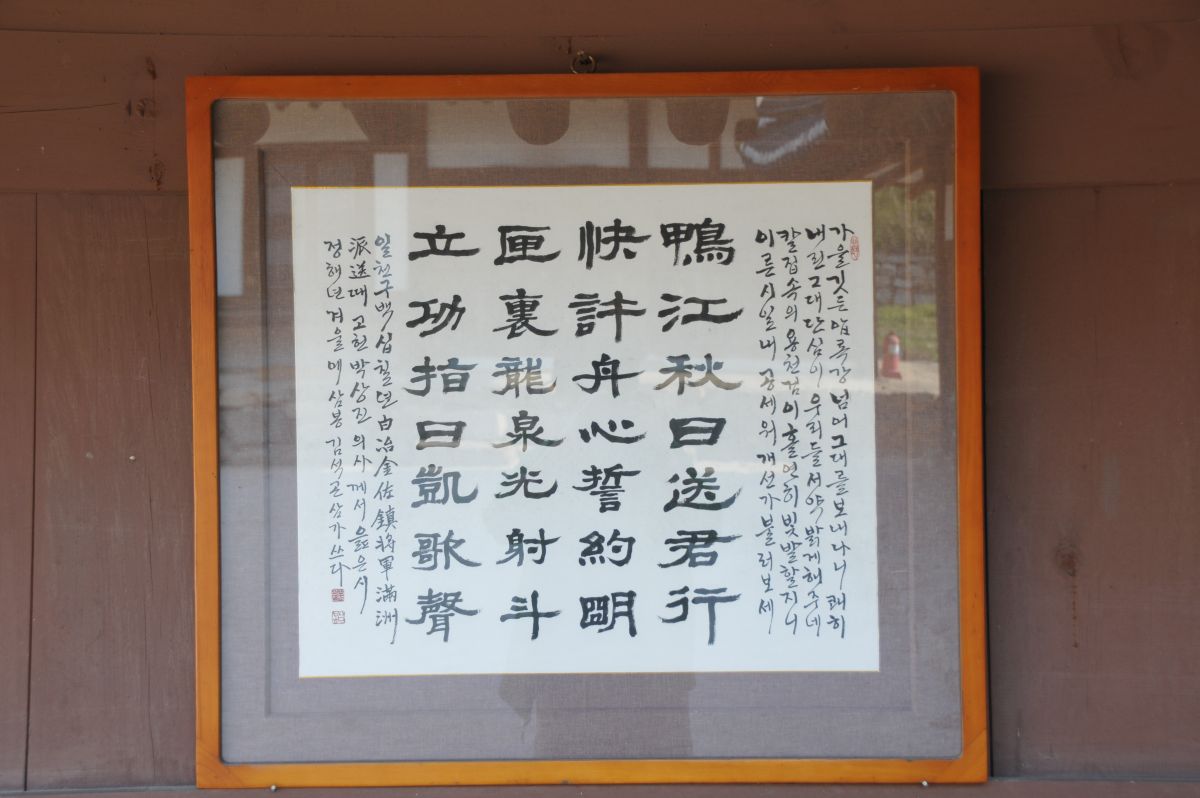 가을깃든압록강넘어그대를보내나니 쾌히
내린그대단심이 우리들서약밝게해주네
칼집속의용천검이홀연히빛발할지니
이른시일내 공세워개선가불러보세
鴨江秋日送君行
快許丹心誓約明
匣裏龍泉光射斗
立功指日凱歌聲
일천구백십칠년白冶金佐鎭將軍滿洲
派送때 고헌박상진의사께서읊은시
정해년겨울에삼봉김석곤삼가쓰다